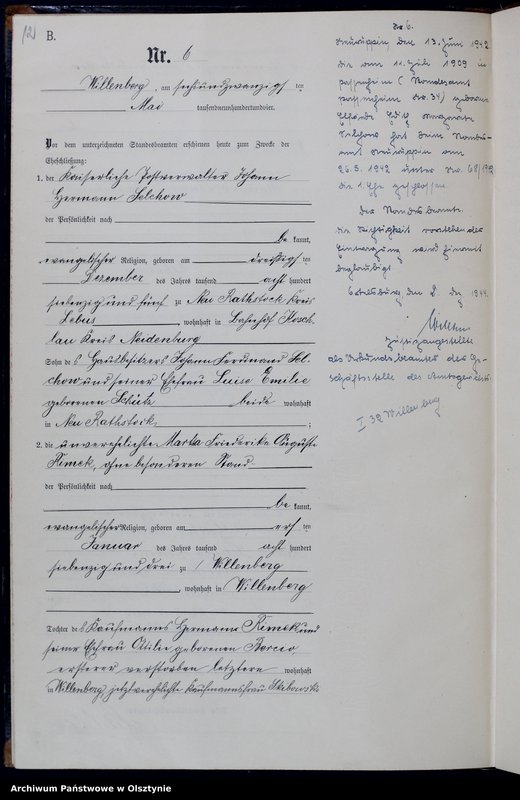 B.
Nr. 6
Willenberg, am sechsundzwanzigsten
Mai tausendneunhundertundvier.
Vor dem unterzeichneten Standesbeamten erschienen heute zum Zwecke der
Eheschließung:
1. der Kaiserliche Postverwalter Johann
Hermann Selchow
der Persönlichkeit nach
be kannt,
evangelischer Religion, geboren am dreißigsten
Dezember des Jahres tausend acht hundert
siebenzig und fünf zu Neu Rathstock Kreis
Lebus, wohnhaft in Bahnhof Kosch
lau Kreis Neidenburg
Sohn des Hausbesitzers Johann Ferdinand Sel
chow und seiner Ehefrau Luise Emilie
geborenen Schütz beide wohnhaft
in Neu Rathstock;
2. die unverehelichte Marta Friederike Auguste
Kimek, ohne besonderen Stand
der Persönlichkeit nach
be kannt,
evangelischer Religion, geboren am ersten
Januar des Jahres tausend acht hundert
siebenzig und drei zu Willenberg
, wohnhaft in Willenberg
Tochter des Kaufmanns Hermann Kimek und
seiner Ehefrau Otilie geborenen
ersterer verstorben letztere wohnhaft
in Willenberg, jetzt verehelichte Kaufmannsfrau
No. 6.
Neuruppin den 13. Juni 1942
die am 11. Juli 1909 in
Passenheim (Standesamt
Passenheim No. 34) geborene
Edith Margarete
Selchow hat beim Standes-
amt Neuruppin am
26.5.1942 unter No. 68/1942
die 1. Ehe geschlossen
Der Standesbeamte.
die Richtigkeit vorstehender
Eintragung wird hiermit
beglaubigt
Ortelsburg den 2. 1944.
Justizangestellte
als Urkundsbeamter der Ge-
schäftsstelle des Amtsgerichts.
I 32 Willenberg
Archiwum Państwowe w Olsztynie